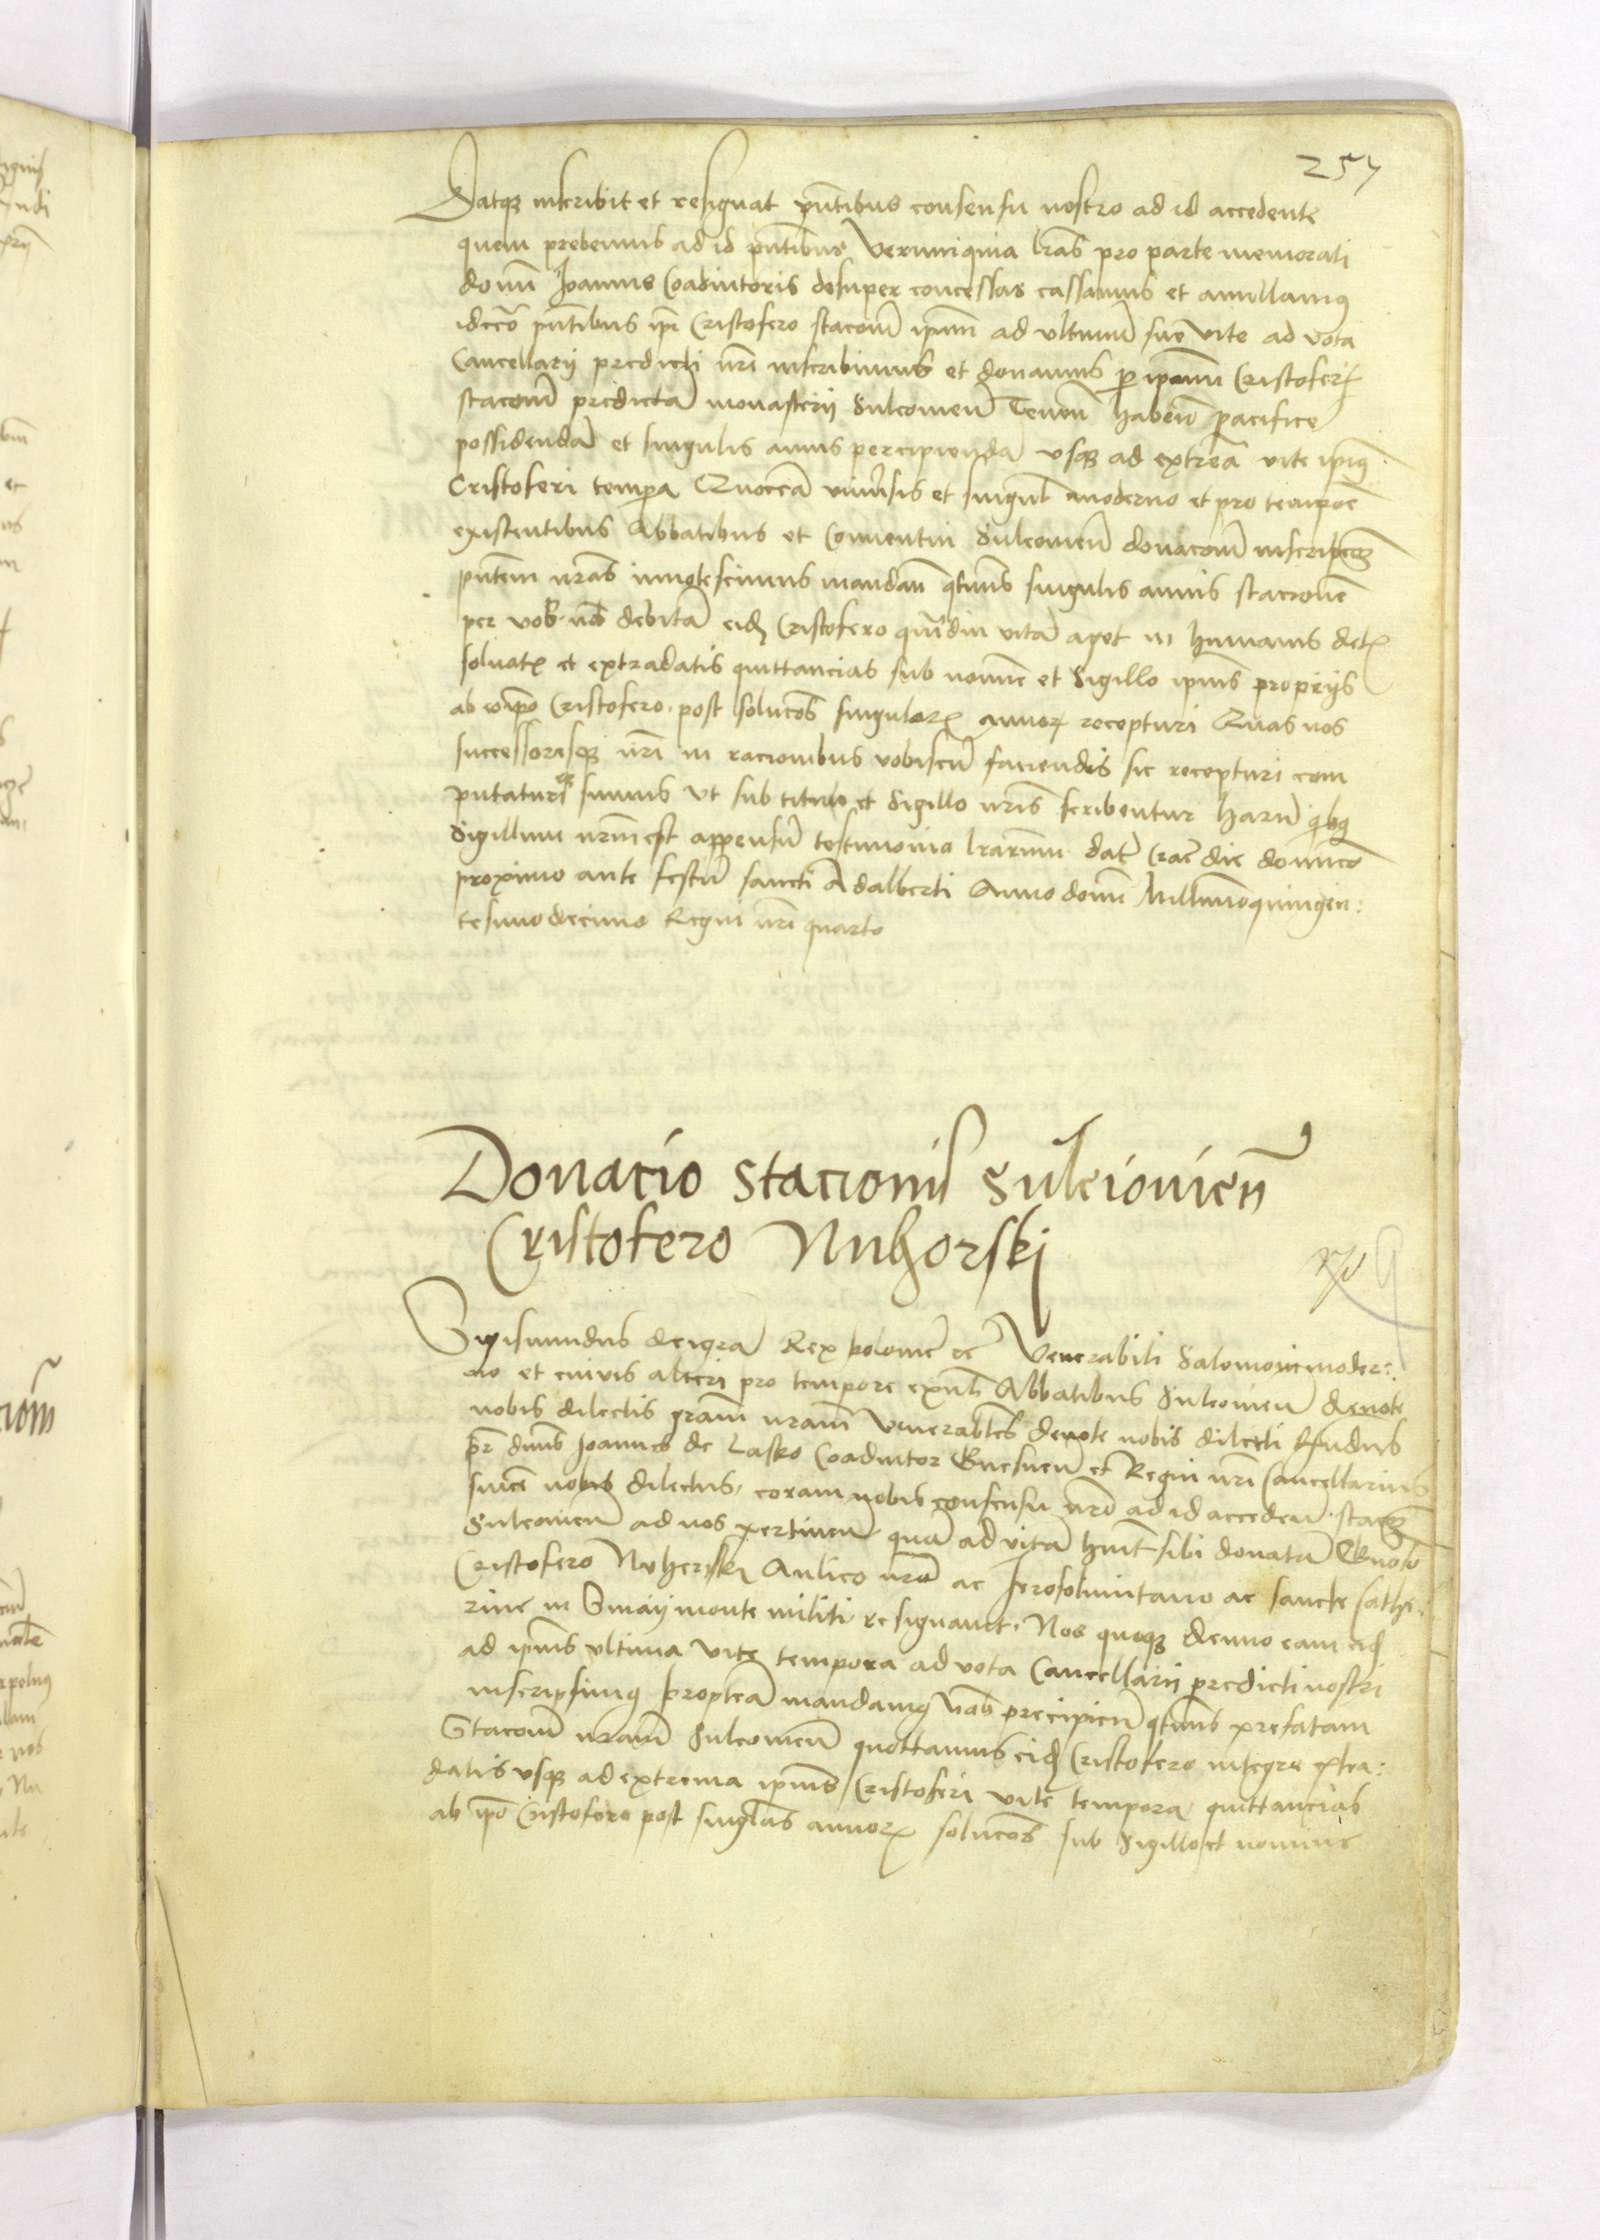 257
Datqz inscribit et resignat pntibus consensu nostro ad id accedente
quem prebemus ad id pntibus Verumquia lras pro parte memorati
domi Joannis Coadiutoris desuper concessas cassamus et anullamus
idcirco pntibus ipi Cristofero stacom ipam ad ultimu sue vite ad vota
Cancellarij predicti nri inscribimus et donamus p ipum Cristoferu
stacom predicta monasterij Suleouien Tenen haben pacifice
possidenda et singulis annis percipienda vsqz ad extrema vite ipius
Cristoferi tempa Quocca vniusis et singul moderno et pro tempore
existentibus Abbatibus et Conuentui Suleouien donacom inscripcoz
pntem nras innotescimus mandan qtenus singulis annis stacionem
per vob nob debita eidz Cristofero qmdiu vita aget in humanis
soluatis et extradatis quittancias sub nomine et Sigillo ipius proprijs
ab ipo Cristofero post solucoes singularz annorz recepturi Quas nos
successoresqz nri in racionibus vobiscu faciendis sic recepturi com
putaturi sumus Vt sub titulo et Sigillo nris scribentur Haru qbus
Sigillum nrum est appensu testimonio lrarum dat Crac die domico
proximo ante festu sancti Adalberti Anno domi Millmoquingen:
tesimodecimo Regni nri quarto
Donacio stacionis Suleiouien
Cristofero Nuhorski
Sigismundus deigra Rex polonie ec Venerabili Salomoni moder:
no et cuiuis alteri pro tempore exnti Abbatibus Suleouien deuote
nobis dilectis gram nram Venerabiles deuote nobis dilecti Rndus
pr dnus Joannes de Lasko Coadiutor Gnesnen et Regni nri Cancellarius
sincere nobis dilectus, coram nobis consensu nro ad id acceden stacoz
Suleouien ad nos pertinen qua ad vita huit sibi donata Gnoso
Cristofero Nyhorski Aulico nro ac Jerosolimitano ac sancte Cathe:
rine in Sinaij monte militi resignauit. Nos quoqz denuo eam eidz
ad ipius vltima vite tempora ad vota Cancellarij predicti nostri
inscripsimus proptea mandamus vob precipien qtenus prefatam
Stacom nram Suleouien quottannis eidz Cristofero integre extra:
datis vsqz ad extrema ipius Cristoferi vite tempora quittancias
ab ipo Cristofero post singlas annorz solucoes sub Sigillo et nomine